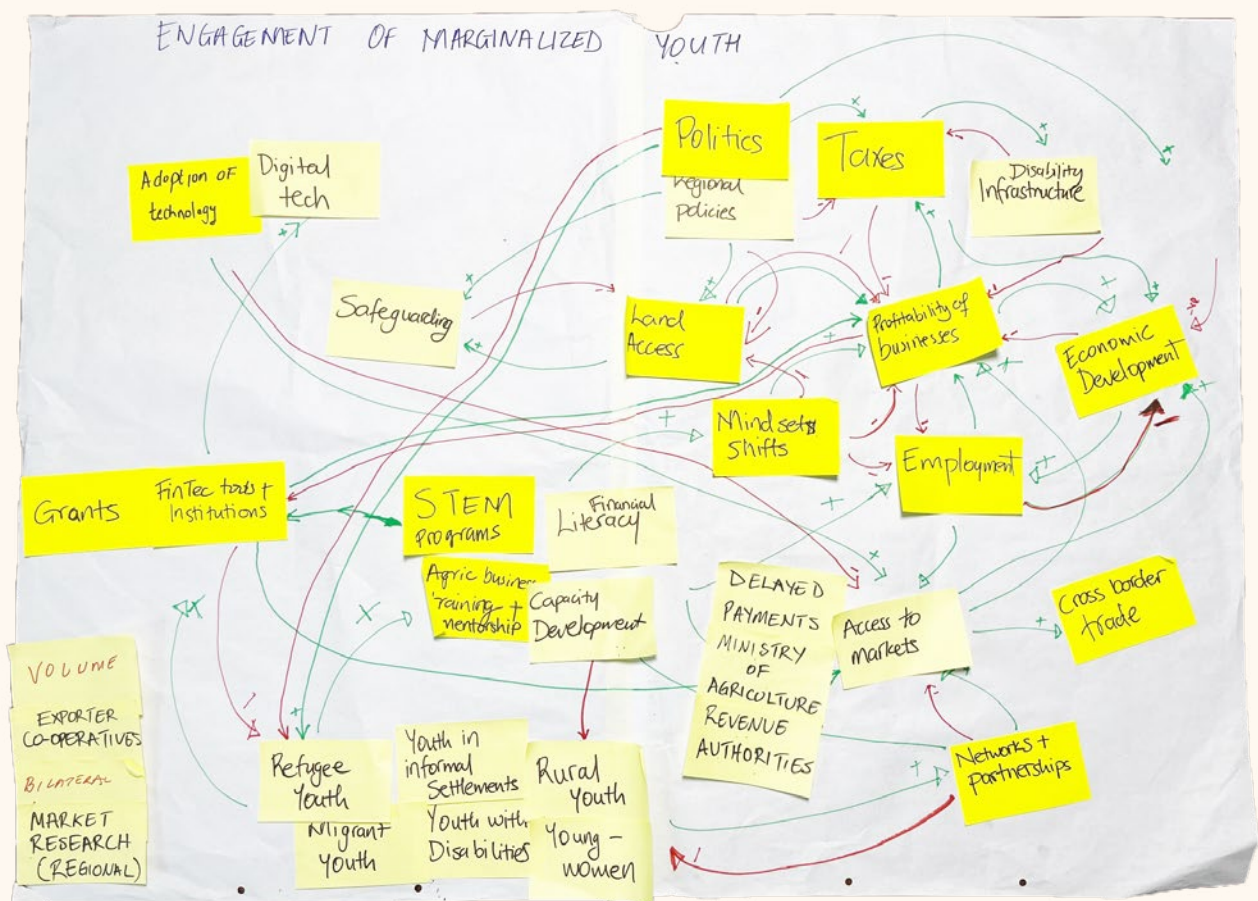 ENGAGEMENT OF MARGINALIZED YOUTH
Politics
Regional
policies
Taxes
Disability
Infrastructure
Adoption of
technology
Digital
tech
Safeguarding
Land
Access
Profitability of
businesses
Economic
Development
Mindsets
Shifts
Employment
Grants
FinTec tools +
Institutions
STEM
programs
Financial
Literacy
Agric business
training +
mentorship
Capacity
Development
DELAYED
PAYMENTS
MINISTRY
OF
AGRICULTURE
REVENUE
AUTHORITIES
Access to
markets
Cross border
trade
Networks +
partnerships
VOLUME
EXPORTER
CO-OPERATIVES
BILATERAL
MARKET
RESEARCH
(REGIONAL)
Refugee
Youth
Migrant
Youth
Youth in
informal
Settlements
Youth with
Disabilities
Rural
Youth
Young-
women